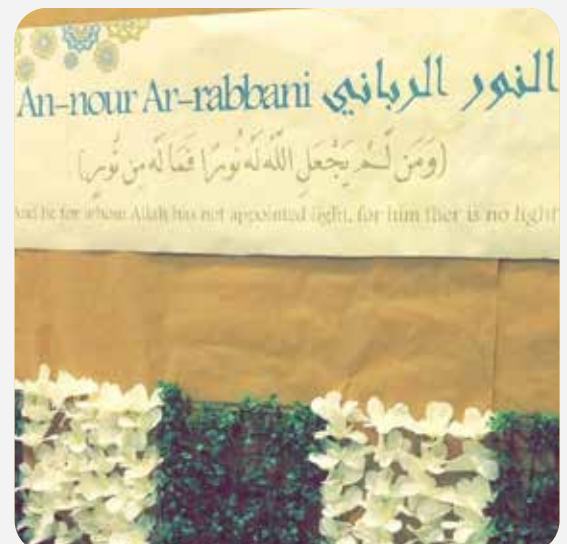 An-nour Ar-rabbani النور الرباني
(وَمَن لَّمْ يَجْعَلِ اللَّهُ لَهُ نُورًا فَمَا لَهُ مِن نُّورٍ)
And he for whom Allah has not appointed light, for him ther is no light